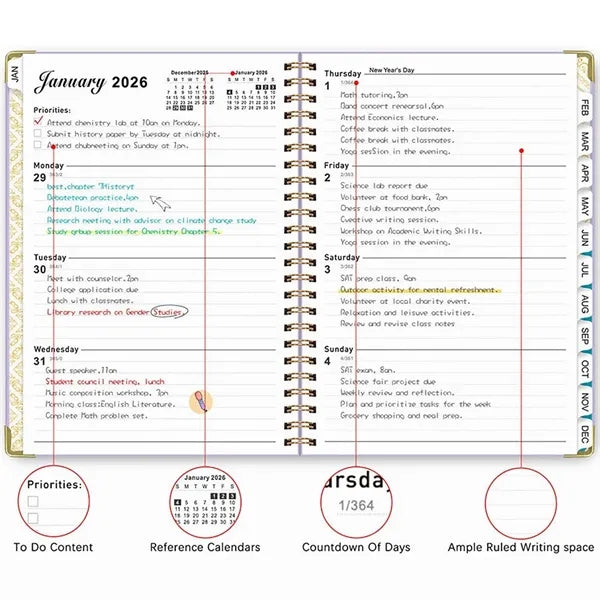 JAN
January 2026
December 2025
January 2026
Priorities:
Attend chemistry lab at 10am on Monday.
Submit history paper by Tuesday at midnight.
Attend chubneeting on Sunday at 7pm.
Monday
29 363/2
best,chapter 7Historyt
Debatetean practice.4pm
Attend Biology lecture.
Research meeting with advisor on climate change study
Study grbup session for Chemistry Chapter 5.
Tuesday
30 364/1
Meet with counselor.2pm
College application due
Lunch with classmates.
Library research on Gender Studies.
Wednesday
31 365/0
Guest speaker,11am
Student council meeting, lunch
Music composition workshop, 7pm
Morning class:English Literature.
Complete Math problem set.
Thursday New Year's Day
1 1/364
Math tutoring,7pm
Band concert rehearsal,6pm
Attend Economics lecture.
Coffee break with classmates.
Coffee break with classmates.
Yoga sesSion in the evening.
Friday
2 2/363
Science lab report due
Volunteer at food bank, 2pm
Chess club tournament,6pm
Cweative writing session
Workshop on Academic Writing Skills.
Yoga session in the evening.
Saturday
3 3/362
SAT prep class, 9am
Outdoor activity for mental refreshment.
Volunteer at local charity event.
Relaxation and leisuve activities.
Review and revise class notes
Sunday
4 4/361
SAT exam, 8am.
Science fair project due
Weekly review and reflection.
Plan and prioritise tasks for the week
Grocery shopping and meal prep.
FEB
MAR
APR
MAY
JUN
JUL
AUG
SEP
OCT
NOV
DEC
Priorities:
January 2026
S M T W T F S
1 2 3
4 5 6 7 8 9 10
11 12 13 14 15 16 17
18 19 20 21 22 23 24
25 26 27 28 29 30 31
ursday
1/364
To Do Content
Reference Calendars
Countdown Of Days
Ample Ruled Writing space